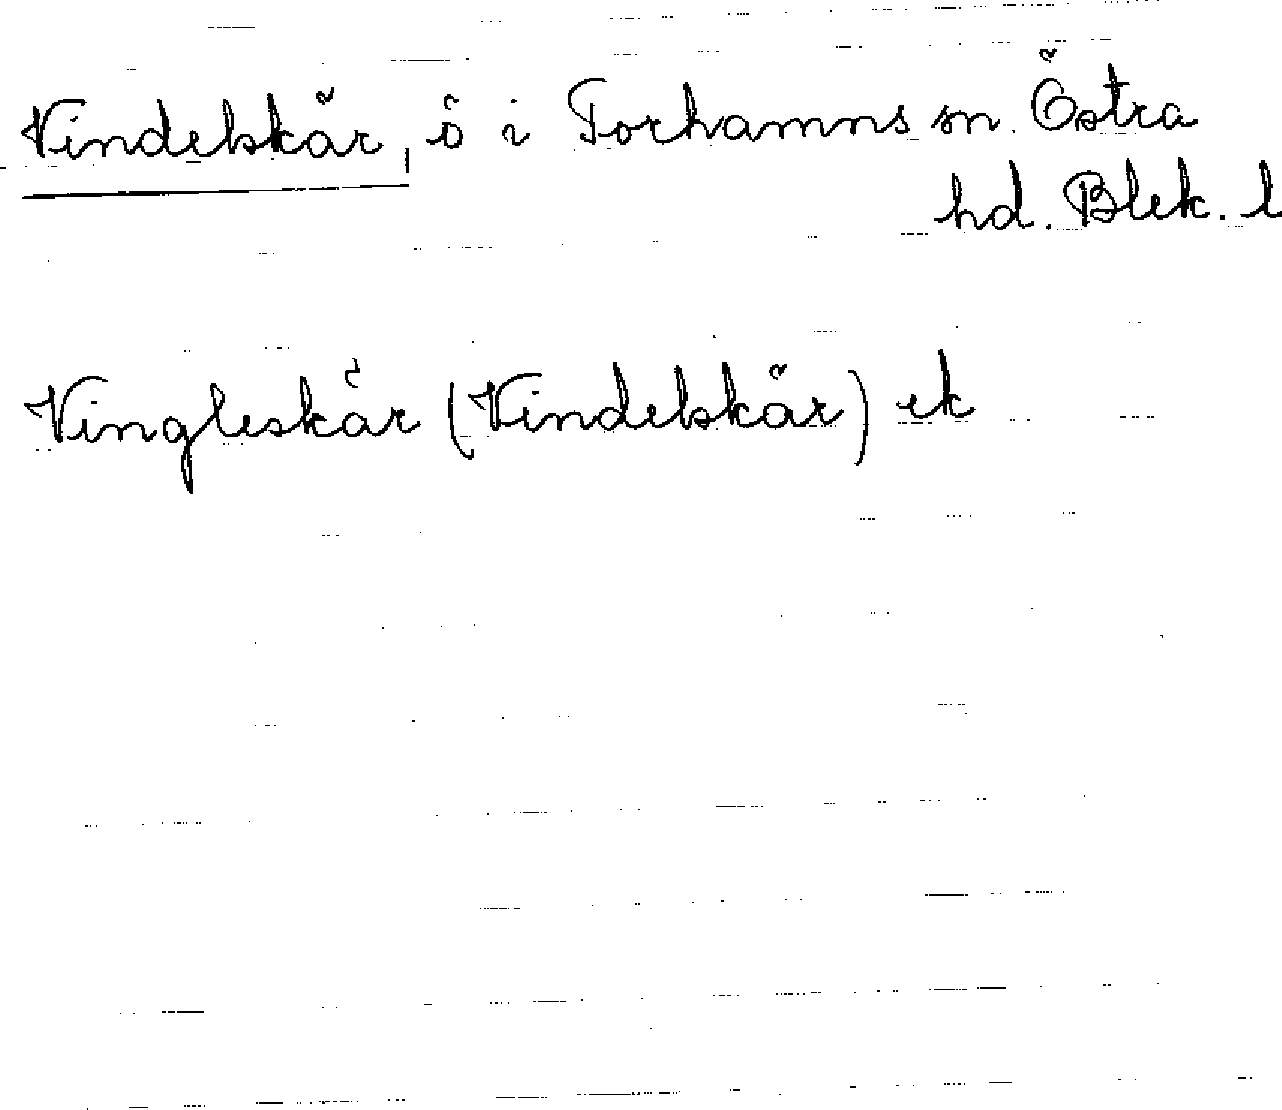 Vindelskär, ö i Torhamns sn. Östra
hd. Blek. l
Vingleskär (Vindelskär) ek